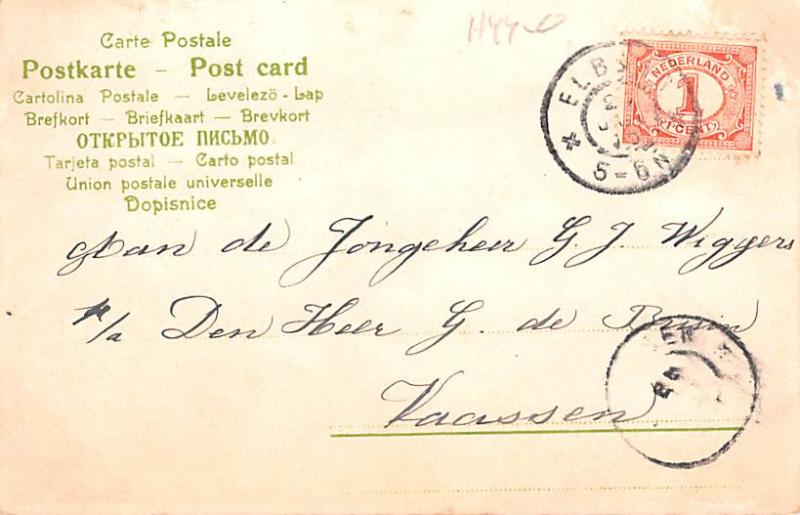 Carte Postale
Postkarte – Post card
Cartolina Postale – Levelező-Lap
Brefkort – Briefkaart – Brevkort
ОТКРЫТОЕ ПИСЬМО
Tarjeta postal – Carto postal
Union postale universelle
Dopisnice
NEDERLAND
1
1 CENT
5-6N
Aan de Jongeheer G. J. Wiggers
p/a Den Heer G. de Bruin
Vaassen